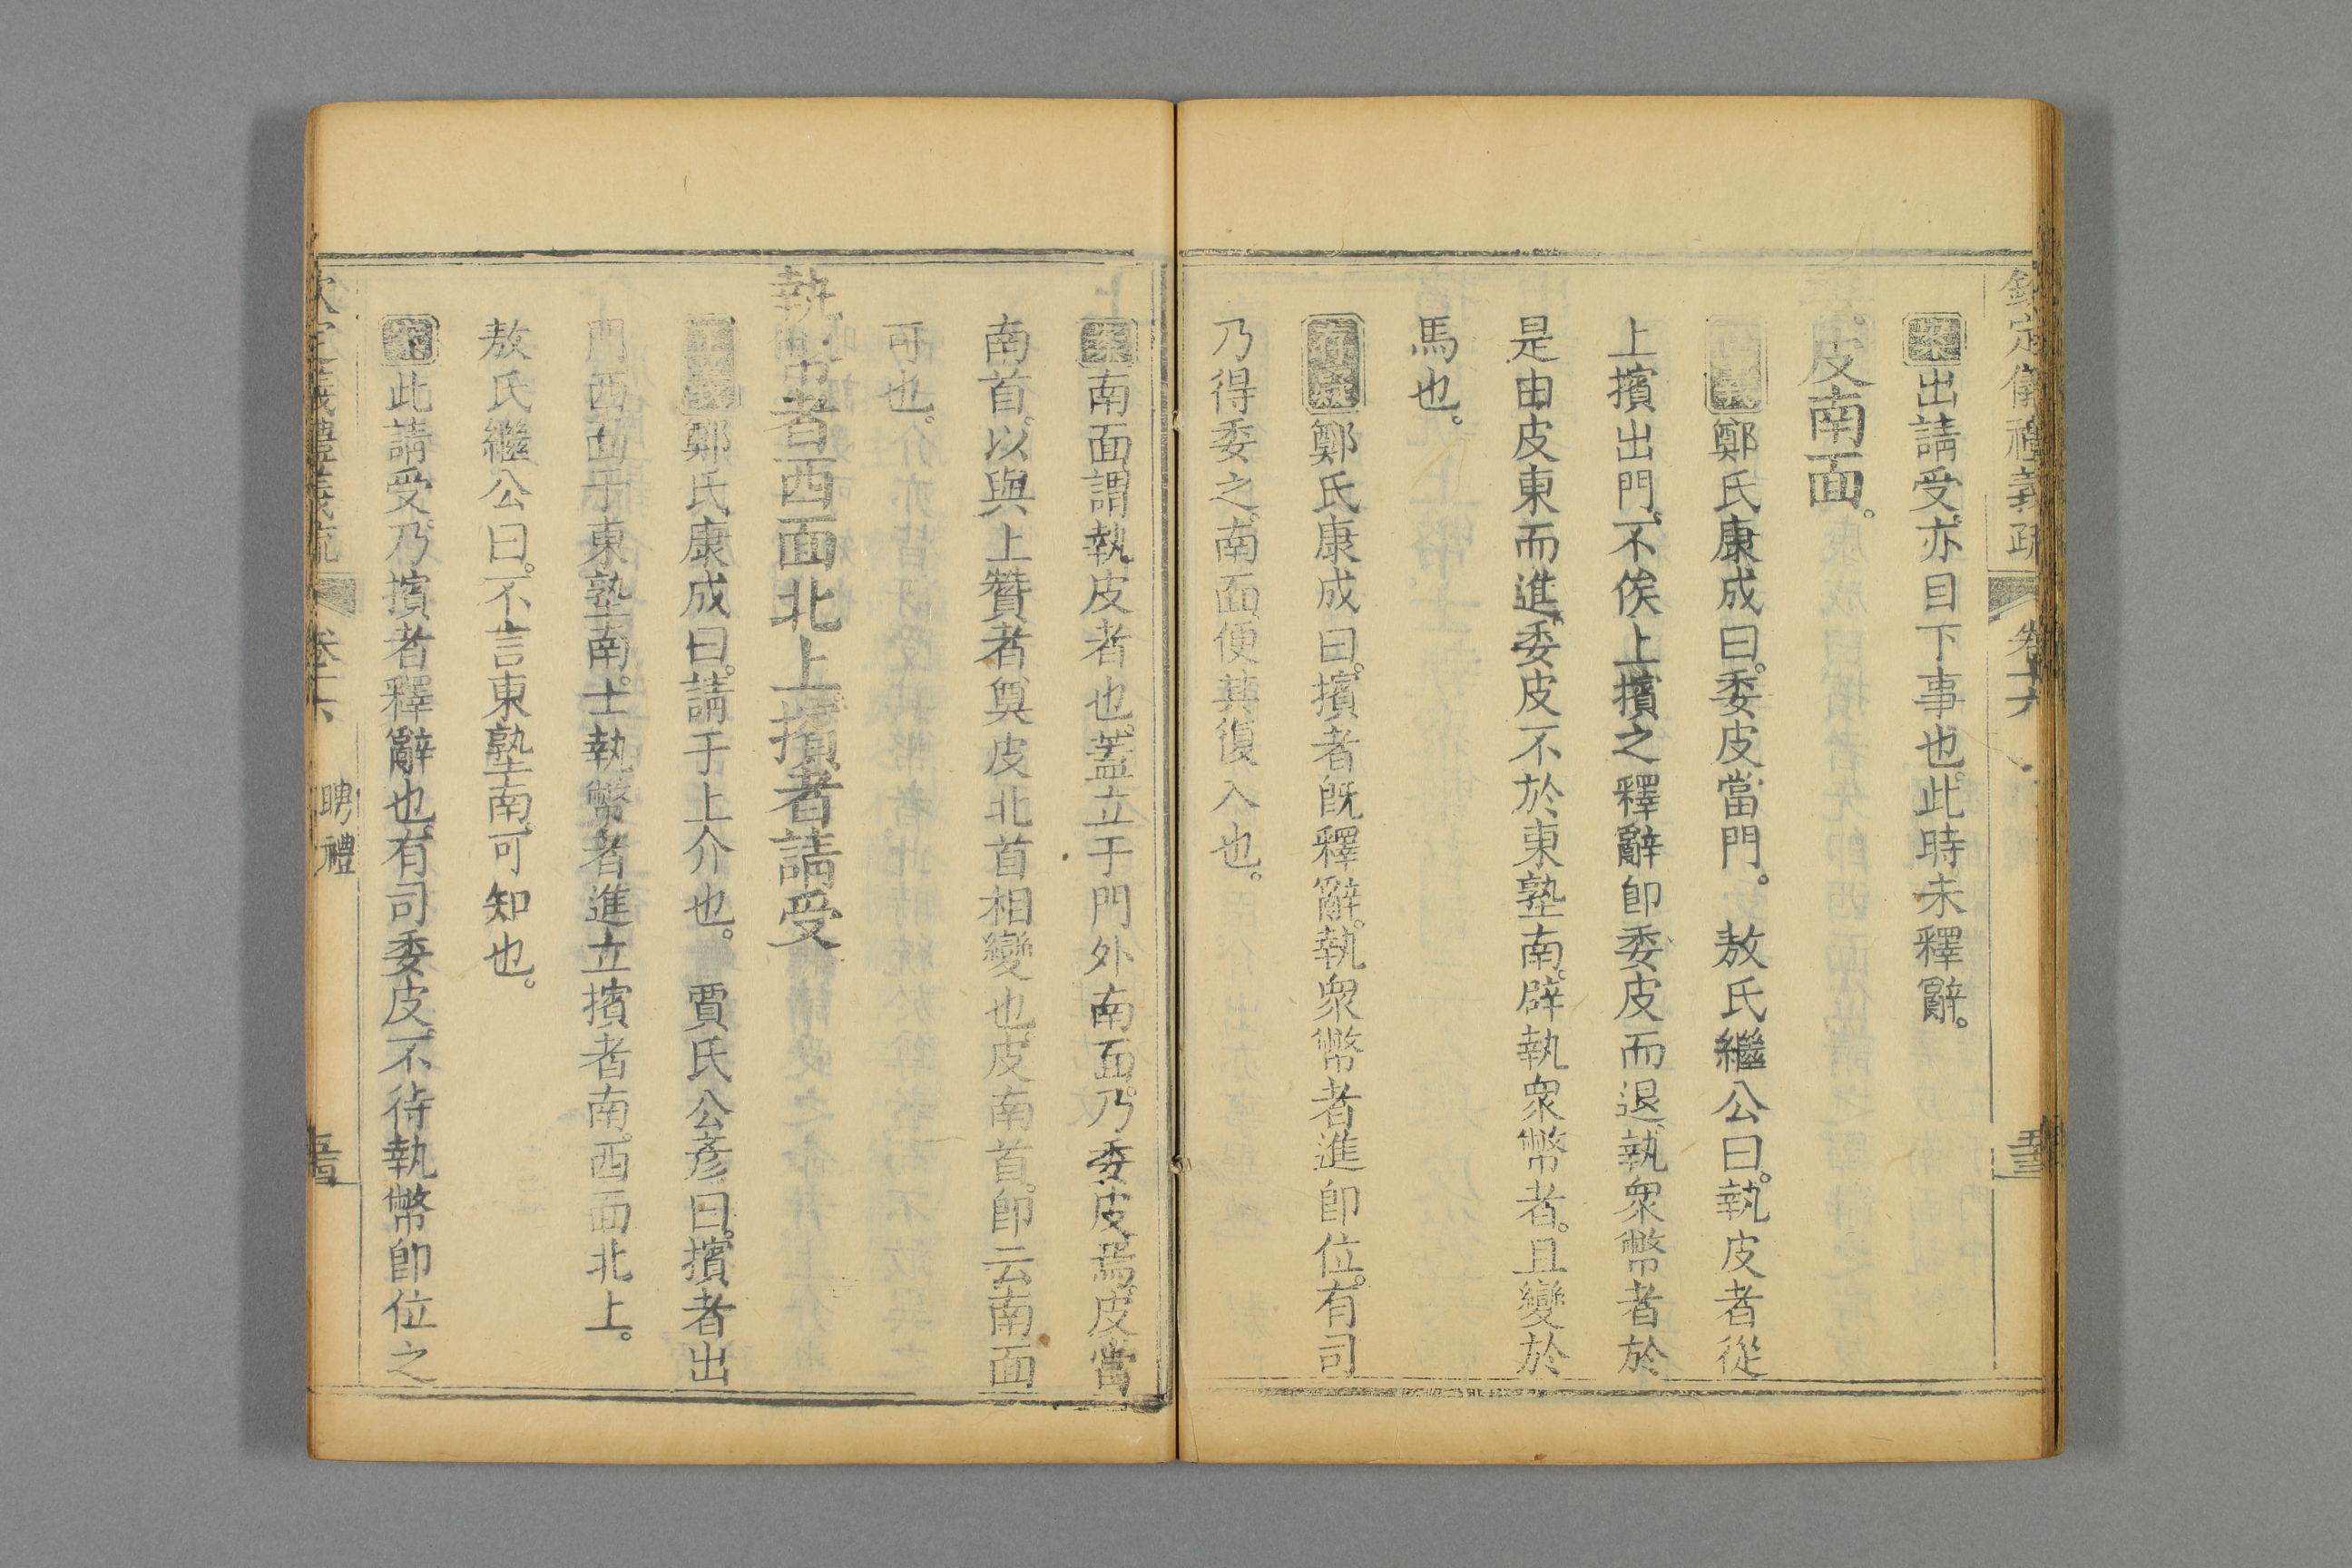 欽定儀禮義疏 卷十六
案出請受亦目下事也此時未釋辭。
皮南面。
鄭氏康成曰。委皮當門。 敖氏繼公曰。執皮者從
上擯出門。不俟上擯之釋辭卽委皮而退。執衆幣者於
是由皮東而進。委皮不於東塾南。辟執衆幣者。且變於
馬也。
存疑鄭氏康成曰。擯者旣釋辭。執衆幣者進卽位。有司
乃得委之。南面便其復入也。
案南面謂執皮者也。蓋立于門外南面。乃委皮焉。皮當
南首。以與上贊者奠皮北首相變也。皮南首。卽云南面
可也。
執幣者西面北上。擯者請受
正義鄭氏康成曰。請于上介也。 賈氏公彥曰。擯者出
門西面于東塾南。士執幣者進立擯者南。西面北上。
敖氏繼公曰。不言東塾南。可知也。
案此請受。乃擯者釋辭也。有司委皮。不待執幣卽位之
欽定儀禮義疏 卷十六 聘禮